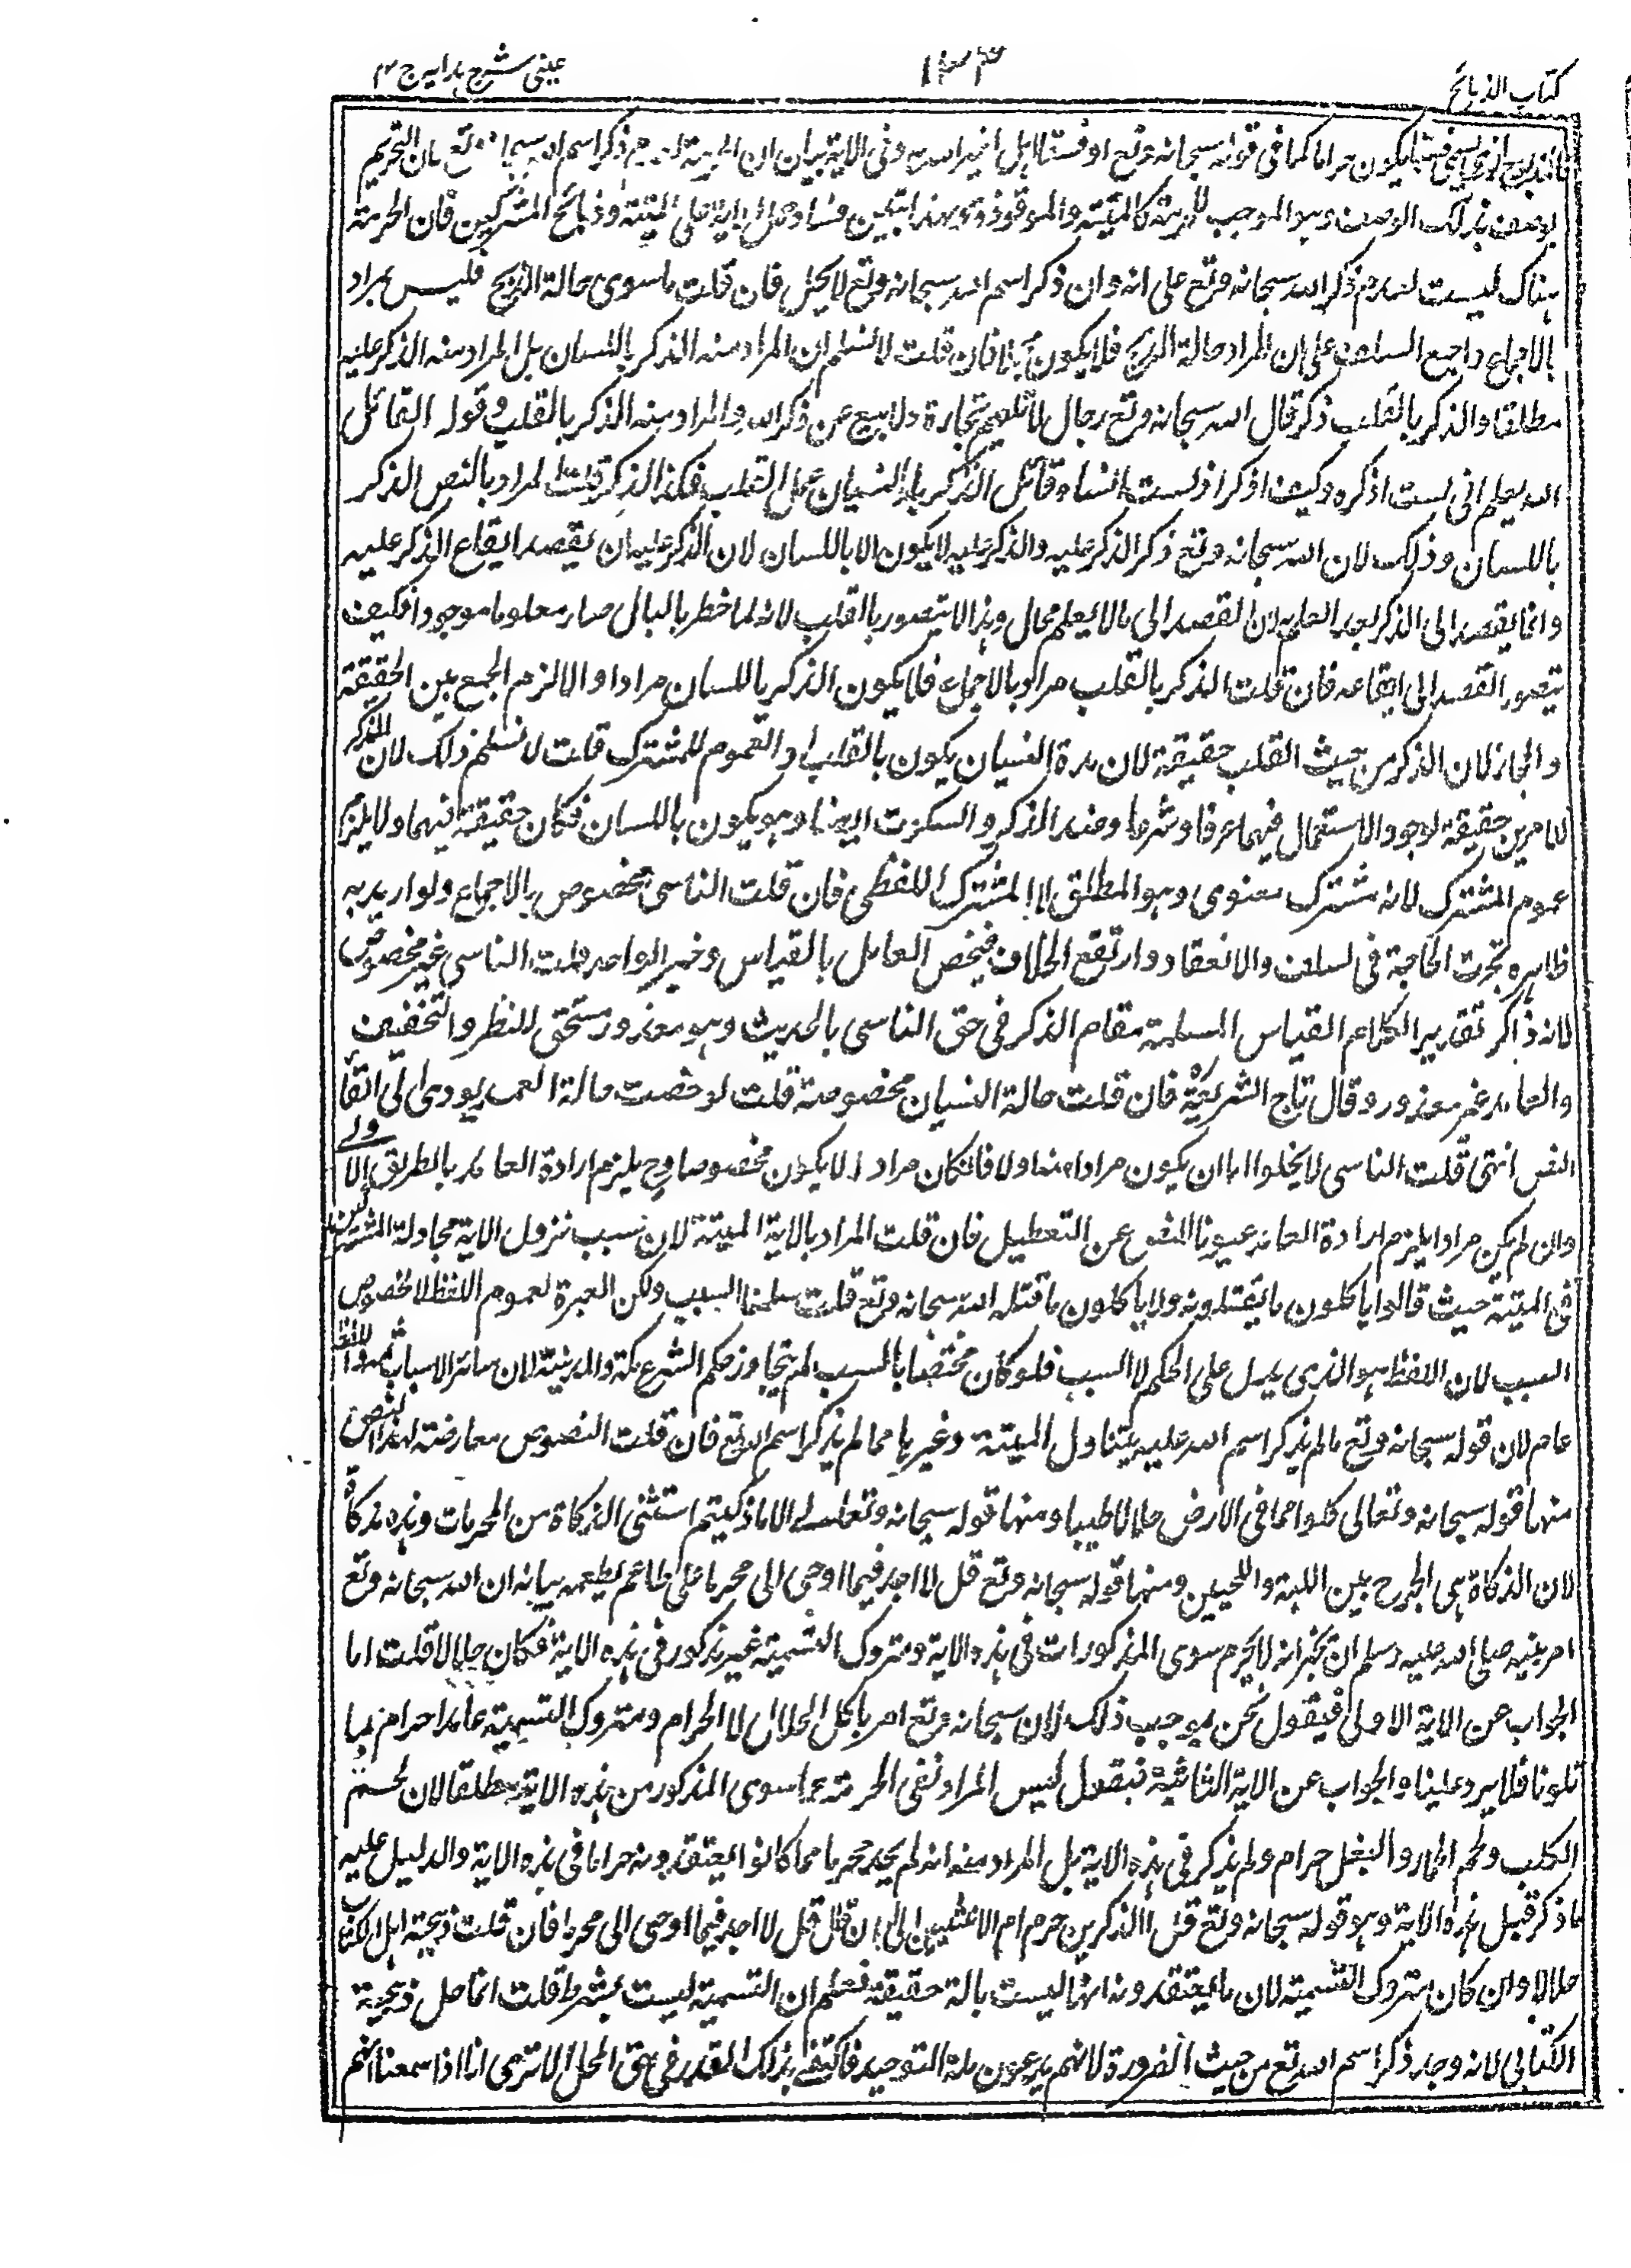 كتاب الذبائح
عيني شرح هدايه ج ٤
يكون حراما كما في قوله سبحانه وتع او فسقا اهل لغير الله به وفي الاية بيان ان الحرمة لعدم ذكر اسم الله سبحانه وتع لان التحريم
بوصف بذلك الوصف وهو الموجب للحرمة كالميتة والموقوذة وبهذا تبين فساد حمل الاية على الميتة وذبائح المشركين فان الحرمة
هناك ليست لعدم ذكر الله سبحانه وتع على انه وان ذكر اسم الله سبحانه وتع لا يحل فان قلت ما سوى حالة الذبح فليس بمراد
بالاجماع واجمع السلف على ان المراد حالة الذبح فلا يكون فان قلت لا نسلم ان المراد منه الذكر باللسان بل المراد منه الذكر عليه
مطلقا والذكر بالقلب ذكر قال الله سبحانه وتع رجال لا تلهيهم تجارة ولا بيع عن ذكر الله والمراد منه الذكر بالقلب وقوله القائل
الله يعلم اني لست اذكره وكيف اذكر اذ لست انساه قائل الذكر النسيان عمل القلب فكذا الذكر قلت المراد بالنص الذكر
باللسان وذلك لان الله سبحانه وتع ذكر الذكر عليه والذكر عليه لا يكون الا باللسان لان الذكر عليه ان يقصد ايقاع الذكر عليه
وانما يقصد الى الذكر بعد العلم به لان القصد الى ما لا يعلم محال وهذا لا يتصور بالقلب لانه لما خطر بالبال صار معلوما موجودا فكيف
يتصور القصد الى ايقاعه فان قلت الذكر بالقلب مراد بالاجماع فلا يكون الذكر باللسان مرادا والا لزم الجمع بين الحقيقة
والمجاز لان الذكر من حيث القلب حقيقة لان النسيان يكون بالقلب او العموم للمشترك قلت لا نسلم ذلك لان الذكر
للامرين حقيقة لوجود الاستعمال فيهما عرفا وشرعا وضد الذكر والسكوت ايضا وهو يكون باللسان فكان حقيقة فيهما ولا يلزم
عموم المشترك لانه مشترك معنوى وهو المطلق لا المشترك اللفظي فان قلت الناسي مخصوص بالاجماع ولو اريد به
ظاهره لجرت الحاجة في السلف والانعقاد وارتفع الخلاف فيخص العامل بالقياس وخبر الواحد قلت الناسي غير مخصوص
لانه ذاكر تقدير القياس مقام الذكر في حق الناسي بالحديث وهو معذور مستحق للنظر والتخفيف
والعامد غير معذور وقال تاج الشريعة فان قلت حالة النسيان مخصوصة قلت لو خصت حالة العمد يودى الى الغاء
النص انتهى قلت الناسي لا يخلوا اما ان يكون مرادا منه اولا فان كان مرادا لا يكون مخصوصا وح يلزم ارادة العامد بالطريق الاولى
وان لم يكن مرادا يلزم ارادة العامد صونا للنص عن التعطيل فان قلت المراد بالاية الميتة لان سبب نزول الاية مجادلة المشركين
في الميتة حيث قالوا ياكلون ما يقتلونه ولا ياكلون ما قتله الله سبحانه وتع قلت سلمنا السبب ولكن العبرة لعموم اللفظ لا لخصوص
السبب لان اللفظ هو الذى يدل على الحكم لا السبب فلو كان مختصا بالسبب لم يتجاوز حكم الشرع مكة والمدينة لان سائر الاسباب ثمه واللفظ
عام لان قوله سبحانه وتع مالم يذكر اسم الله عليه يتناول الميتة وغيرها مما لم يذكر اسم الله تع فان قلت النصوص معارضته لهذا النص
منها قوله سبحانه وتعالى كلوا مما في الارض حلالا طيبا ومنها قوله سبحانه وتعالى الا ما ذكيتم استثنى الذكاة من المحرمات وهذه ذكاة
لان الذكاة هى الجرح بين اللبة واللحيين ومنها قوله سبحانه وتع قل لا اجد فيما اوحى الى محرما على طاعم يطعمه بيانه ان الله سبحانه وتع
امر نبيه صلى الله عليه وسلم ان يخبر انه لا يحرم سوى المذكورات في هذه الاية ومتروك التسمية غير مذكور في هذه الاية فكان حلالا قلت اما
الجواب عن الاية الاولى فيقول نحن بموجب ذلك لان سبحانه وتع امر باكل الحلال لا الحرام ومتروك التسمية عامدا حرام بما
تلونا فلا يرد علينا والجواب عن الاية الثانية فيقول ليس المراد نفى الحرمة عما سوى المذكور من هذه الاية مطلقا لان لحم
الكلب ولحم الحمار والبغل حرام ولم يذكر في هذه الاية بل المراد منه انه لم يجد محرما مما كانوا يعتقدونه حراما في هذه الاية والدليل عليه
ما ذكر قبل هذه الاية وهو قوله سبحانه وتع قل أالذكرين حرم ام الانثيين الى ان قال قل لا اجد فيما اوحى الى محرما فان قلت ذبيحة اهل الكتاب
حلالا وان كان متروك التسمية لان ما يعتقدونه الها ليست باله حقيقة فعلم ان التسمية ليست بشرط قلت انما حل ذبيحة
الكتابى لانه وجد ذكر اسم الله تع من حيث الضرورة لانهم يدعون ملة التوحيد فاكتفى بذلك القدر في حق الحل الا ترى انا اذا سمعنا انهم